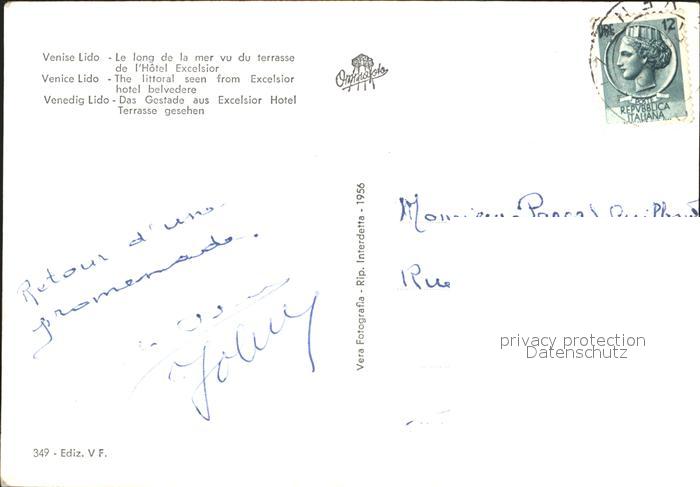 Venise Lido - Le long de la mer vu du terrasse
de l'Hôtel Excelsior
Venice Lido - The littoral seen from Excelsior
hotel belvedere
Venedig Lido - Das Gestade aus Excelsior Hotel
Terrasse gesehen
LIRE 12
POSTE
REPVBBLICA
ITALIANA
Retour d'une
promenade.
Vera Fotografia - Rip. Interdetta - 1956
Monsieur
Rue
privacy protection
Datenschutz
349 - Ediz. V F.